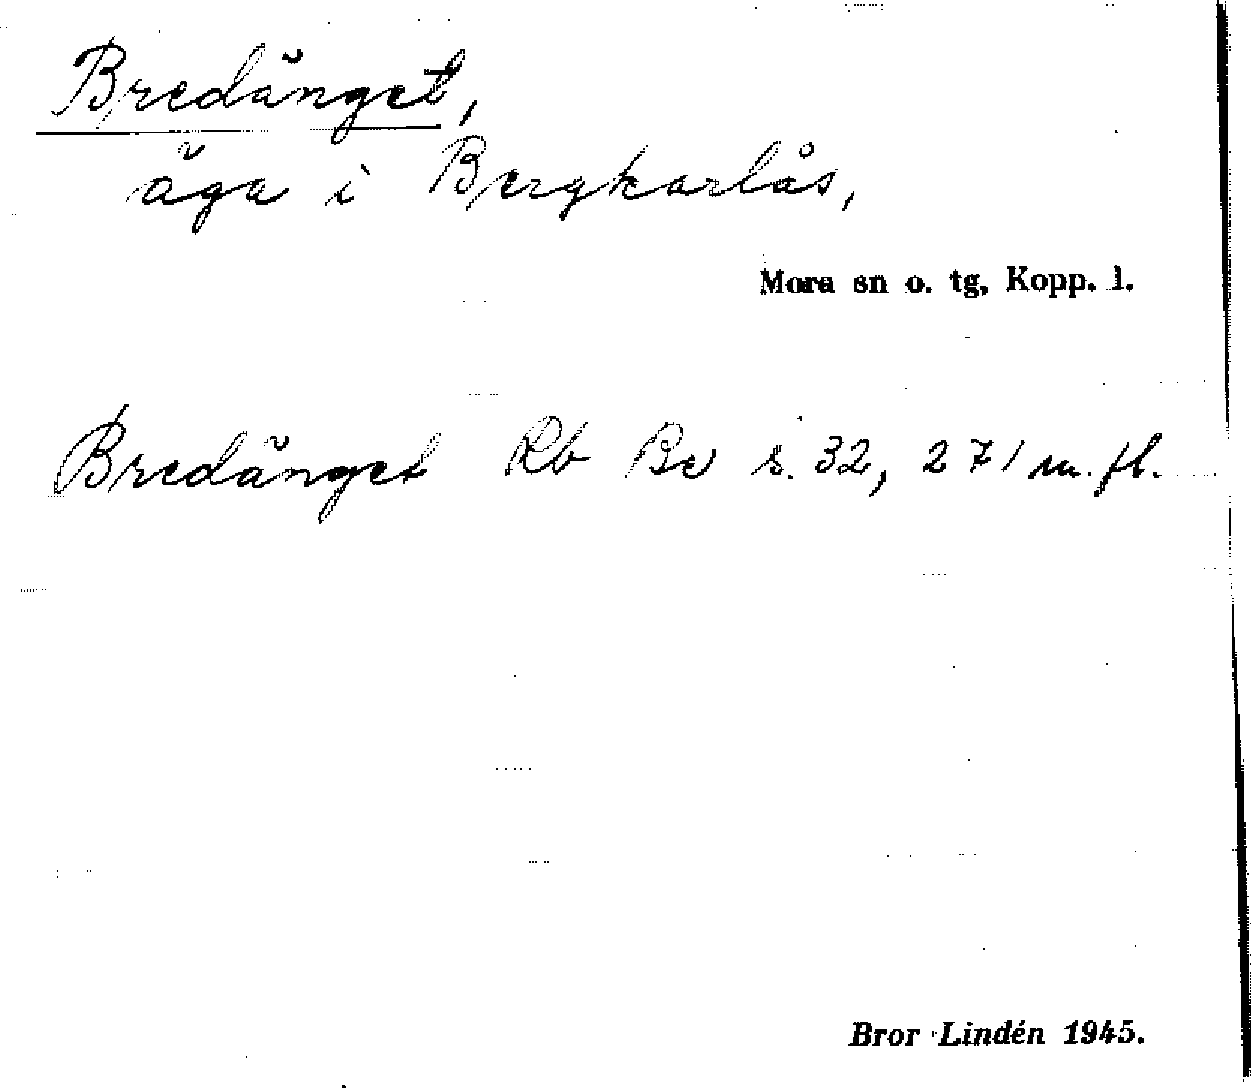 Bredänget,
äga i Bergkarlås,
Mora sn o. tg, Kopp. l.
Bredänget Rb Be s. 32, 271 m. fl.
Bror Lindén 1945.